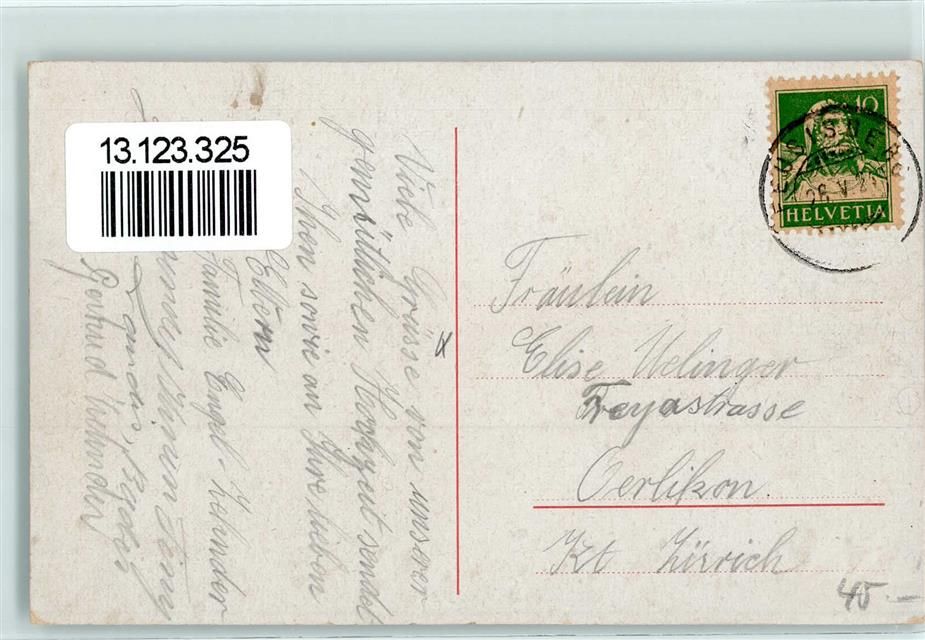 13.123.325
10
HELVETIA
26. V. 2
Viele Grüsse von unserer
gemütlichen Hochzeit sendet
Ihnen sowie an Ihre lieben
Eltern
Familie Engel. Zehnder
Gertrud Zehnder
Fräulein
Elise Welinger
Freyastrasse
Oerlikon
Kt Zürich
45.—